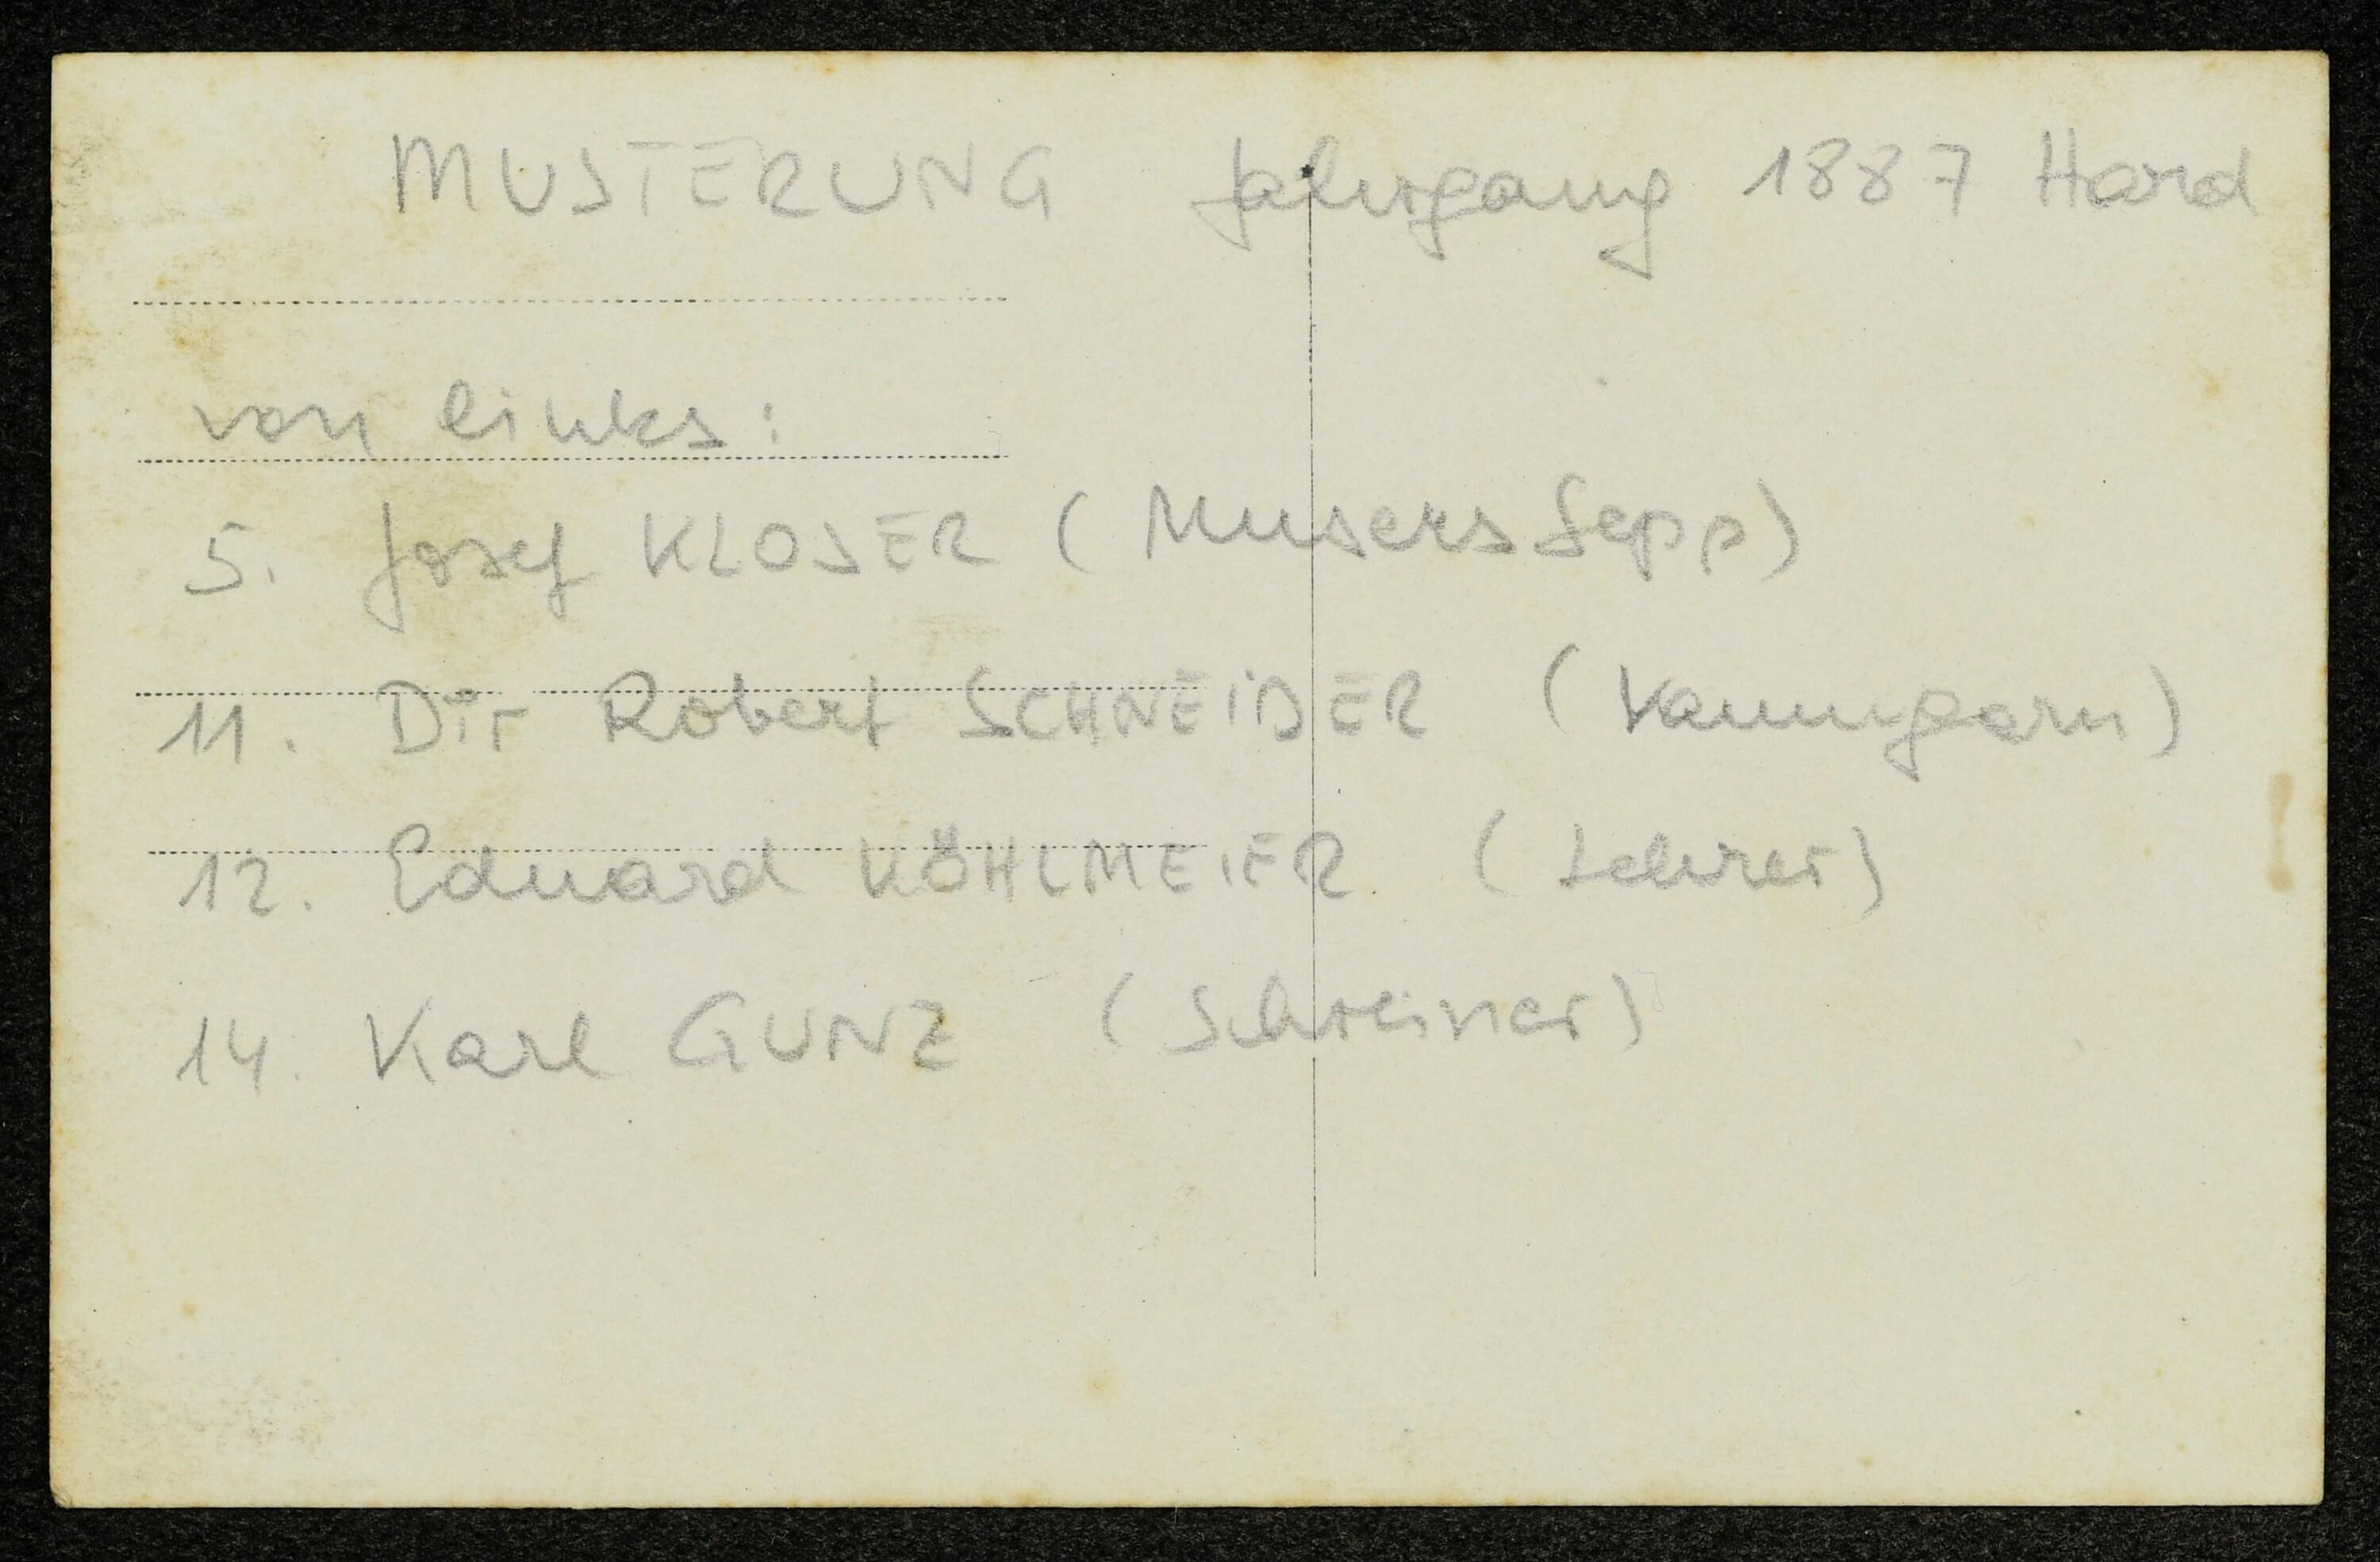 MUSTERUNG Jahrgang 1887 Hard
von links:
5. Josef KLOSER (Musers Sepp)
11. Dir Robert SCHNEIDER (Kammgarn)
12. Eduard KÖHLMEIER (Lehrer)
14. Karl GUNZ (Schreiner)